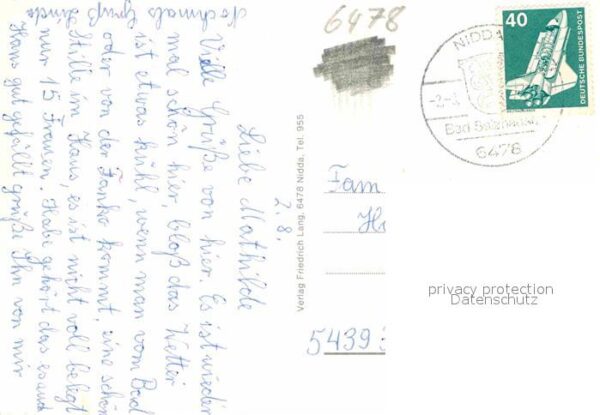 2.8.
Liebe Mathilde
Viele Grüße von hier. Es ist wieder
mal schön hier, bloß das Wetter
ist etwas kühl, wenn man vom Bad
oder von der Fango kommt, eine schön
Stille im Haus, es ist nicht voll belegt
nur 15 Frauen. Habe gehört das es auch
Hans gut gefällt grüße Ihn von mir
Nochmals Gruß Linda
6478
Verlag Friedrich Lang, 6478 Nidda, Tel. 955
40
DEUTSCHE BUNDESPOST
NIDDA
-2.-8.
Bad Salzhausen
6478
Fam
5439
privacy protection
Datenschutz